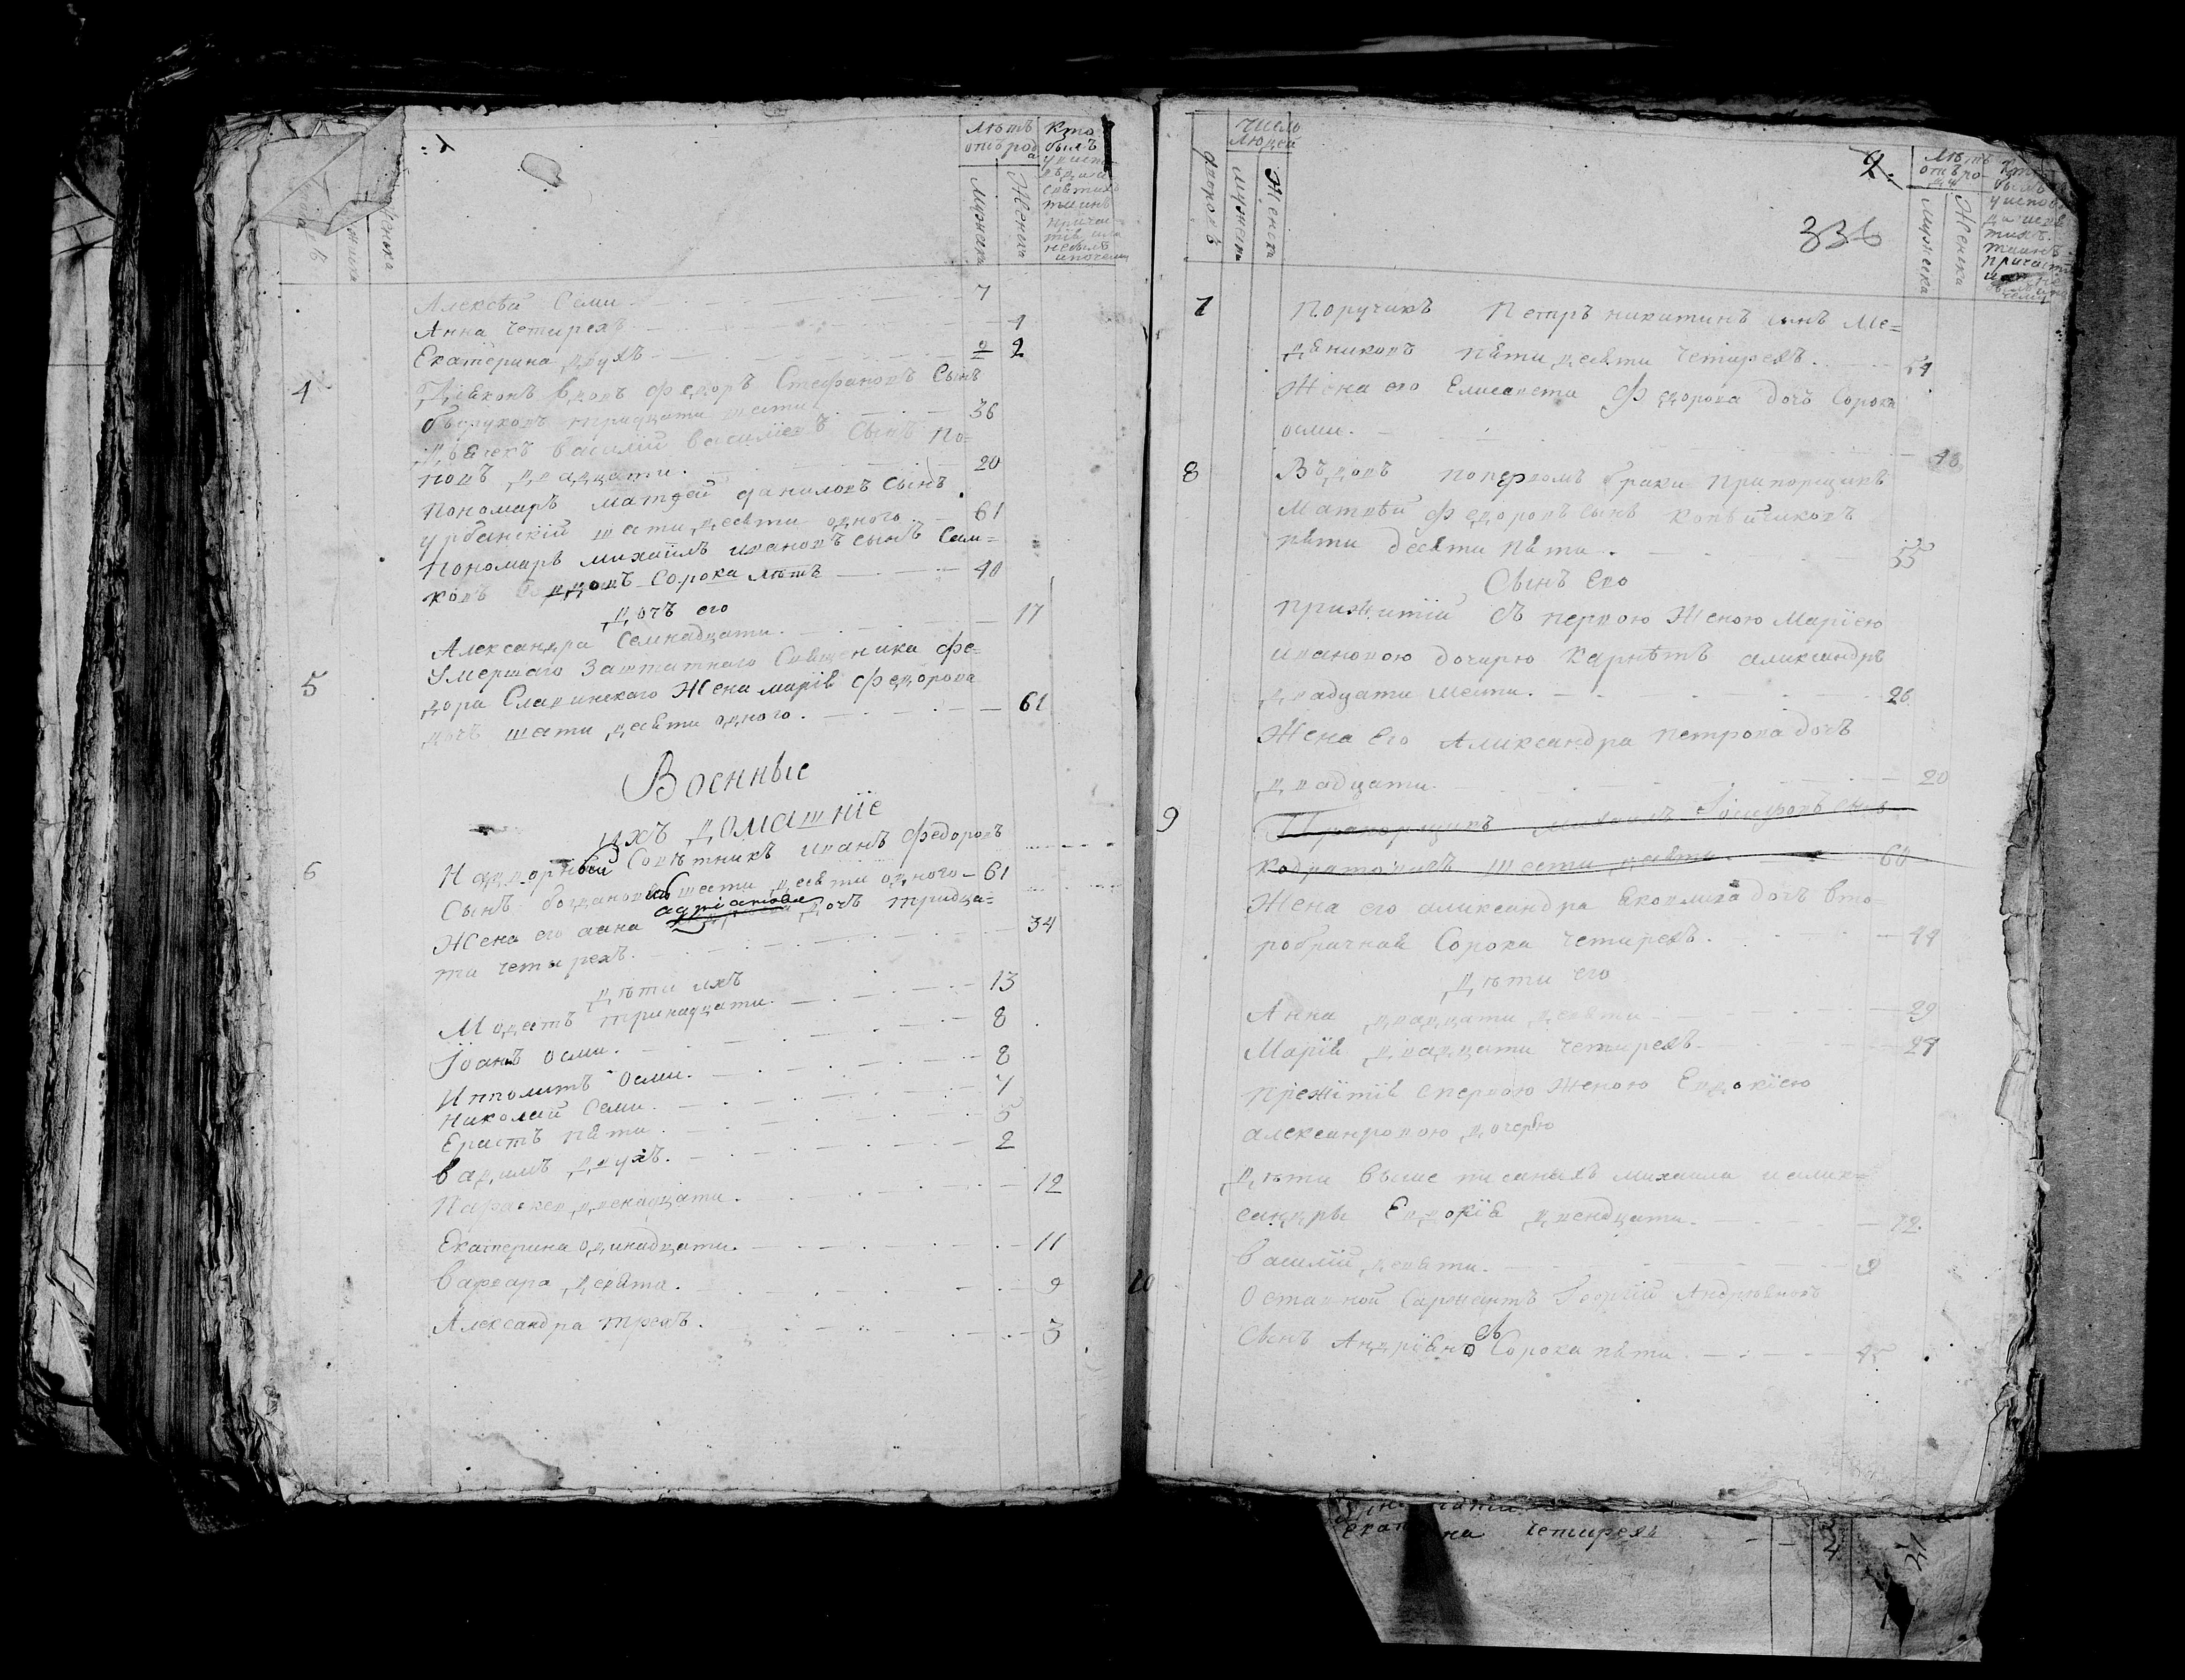 Лѣтъ
отъ рода
Мужеска
Женска
Кто
былъ
Алексѣй Семи 7
Анна четирехъ 4
Екатерина двухъ 2
4 Дїяконъ вдовъ Федоръ Стефановъ Сынъ
тридцати шести 36
Дьячекъ Василїй Василїевъ Сынъ По=
повъ двадцати. 20
Пономаръ Матѳей Даниловъ Сынъ
Урбанскїй шести десяти одного 61
Пономаръ Михаилъ Ивановъ Сынъ Сам=
ковъ вдовъ Сорока лѣтъ 40
Дочъ его
Александра Семнадцати. 17
5 Умершаго Заштатнаго Священика Фе=
дора Славинскаго Жена Марїя Федорова
дочъ шести десяти одного. 61
Военные
ихъ домашнїе
6 Надворный Совѣтникъ Иванъ Федоровъ
Сынъ Богдановичь шести десяти одного 61
Жена его Анна дочъ тридца=
ти четырехъ. 34
Дѣти ихъ
Модестъ тринадцати. 13
Іоанъ осми. 8
Ипполитъ Осми. 8
Николай Семи. 7
Ерастъ пяти. 5
Вадимъ двухъ. 2
Параскев двенадцати. 12
Екатерина одинадцати. 11
Варвара девяти. 9
Александра трехъ. 3
Число
людей
дворовъ
мужеска
Женска
2.
336
Лѣтъ
отъ ро-
да
Мужеска
Женска
7 Поручикъ Петръ Никитинъ сынъ Ме=
дяниковъ пяти десяти четирехъ. 54
Жена его Елисавета Федорова дочъ Сорока
осми. 48
8 Въдовъ попервомъ браки Прапорщикъ
Матвѣй Федоровъ сынъ Копѣйчиковъ
пяти десяти пяти. 55
Сынъ Его
прижитїй съ первою Женою Марїею
Ивановою дочерю Карнѣтъ Александръ
Двадцати шести. 26
Жена Его Александра Петрова дочъ
двадцати. 20
9 Прапорщикъ Михаилъ Іосифовъ Сынъ
Кодратовичъ шести десяти 60
Жена его александра Яковлева дочъ вто=
робрачная Сорока четирехъ. 44
Дѣти его
Анна двадцати девяти 29
Марїя двадцати четирехъ 24
прежїтїя с первою женою Евдокїею
александровою дочерю
Дѣти выше писаныхъ михаила и алик=
сандры Евдокїя двенадцати. 12.
Василїй девяти. 9
10 Оставной Саржантъ Георгїй
Сынъ Сорока пяти. 45
четирехъ 4